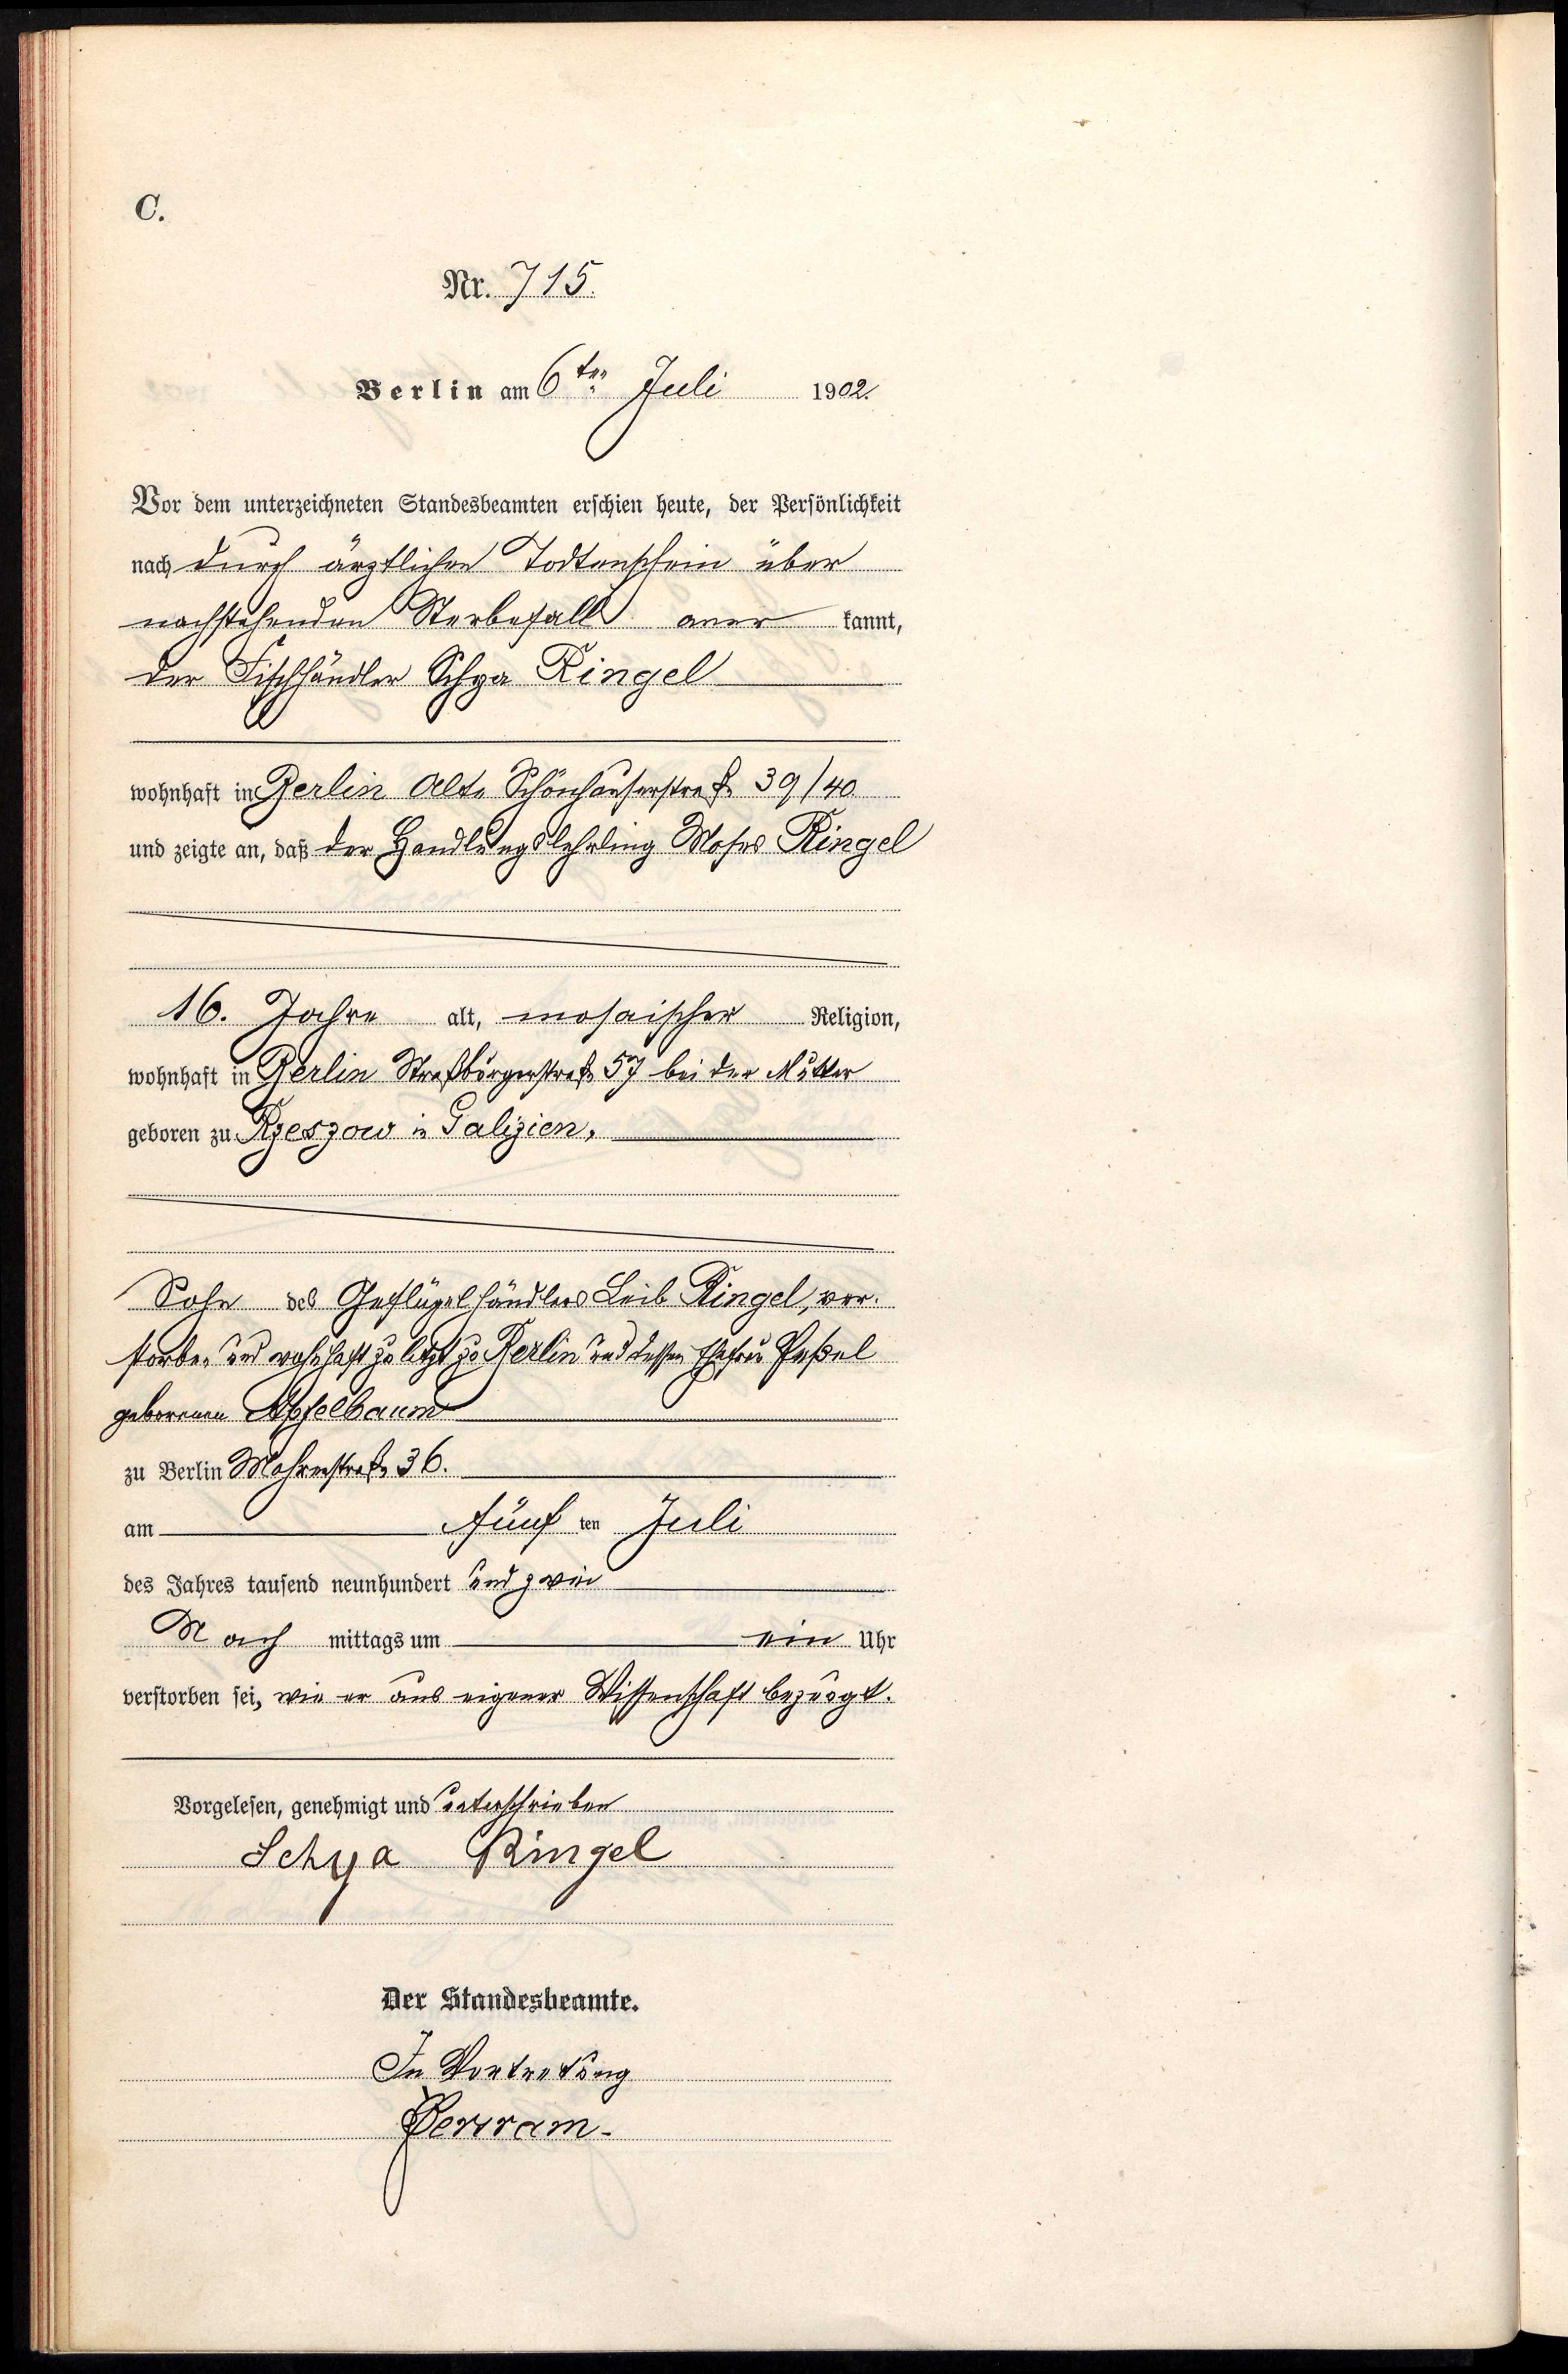 C.
Nr. 715.
Berlin am 6ten Juli 1902.
Vor dem unterzeichneten Standesbeamten erschien heute, der Persönlichkeit
nach durch ärztlichen Todtenschein über
nachstehenden Sterbefall aner kannt,
der Fischhändler Schya Ringel
wohnhaft in Berlin Alte Schönhauserstraße 39/40
und zeigte an, daß der Handlungslehrling Moses Ringel
16. Jahre alt, mosaischer Religion,
wohnhaft in Berlin Straßburgerstraße 57 bei der Mutter
geboren zu Rzeszow in Galizien,
Sohn des Geflügelhändlers Leib Ringel, ver-
storben und wohnhaft zuletzt zu Berlin und dessen Ehefrau Peßel
geborenen Apfelbaum
zu Berlin Mohrenstraße 36.
am fünf ten Juli
des Jahres tausend neunhundert und zwei
Nach mittags um ein Uhr
verstorben sei, wie er aus eigener Wissenschaft bezeugt.
Vorgelesen, genehmigt und unterschrieben
Schya Ringel
Der Standesbeamte.
In Vertretung